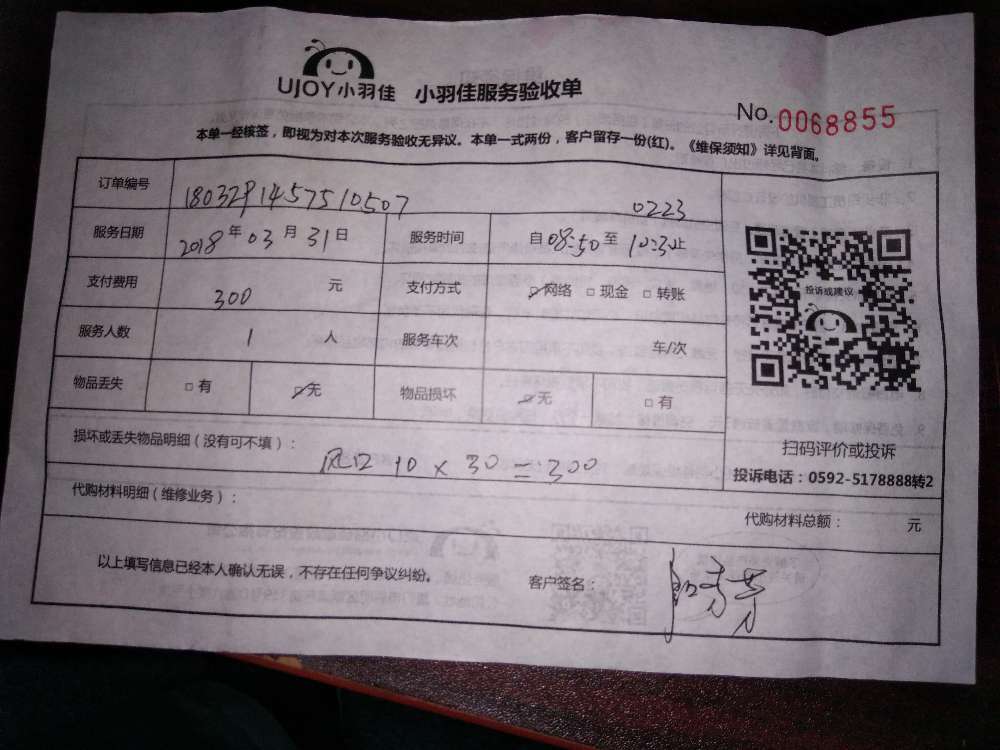 UJOY小羽佳 小羽佳服务验收单
No.0068855
本单一经核签，即视为对本次服务验收无异议。本单一式两份，客户留存一份(红)。《维保须知》详见背面。
订单编号 1803291457510507 0223
服务日期 2018年03月31日 服务时间 自08:50至10:30止
支付费用 300 元 支付方式 ☑网络 □现金 □转账
服务人数 1 人 服务车次 车/次
物品丢失 □有 ☑无 物品损坏 ☑无 □有
投诉或建议
扫码评价或投诉
投诉电话：0592-5178888转2
损坏或丢失物品明细（没有可不填）：
风口 10 × 30 = 300
代购材料明细（维修业务）： 代购材料总额： 元
以上填写信息已经本人确认无误，不存在任何争议纠纷。 客户签名：